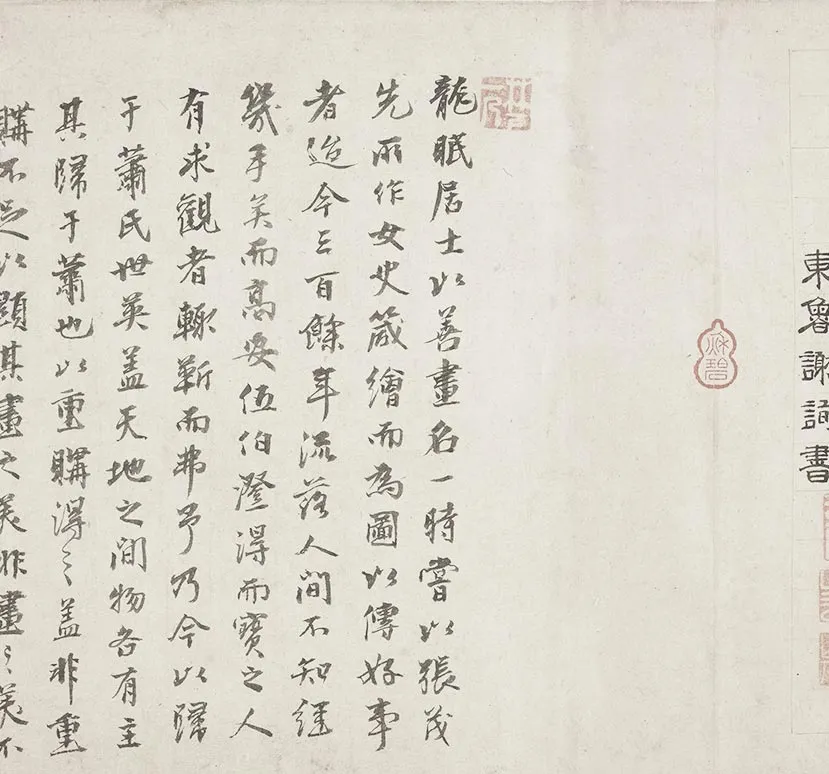 東魯謝詢書
龍眠居士以善畫名一時嘗以張茂
先所作女史箴繪而為圖以傳好事
者迨今三百餘年流落人間不知經
幾手矣而高安伍伯澄得而寶之人
有求觀者輒靳而弗予乃今以歸
于蕭氏世英蓋天地之間物各有主
其歸于蕭也以重購得之蓋非重
購不足以顯其畫之美非畫之美不